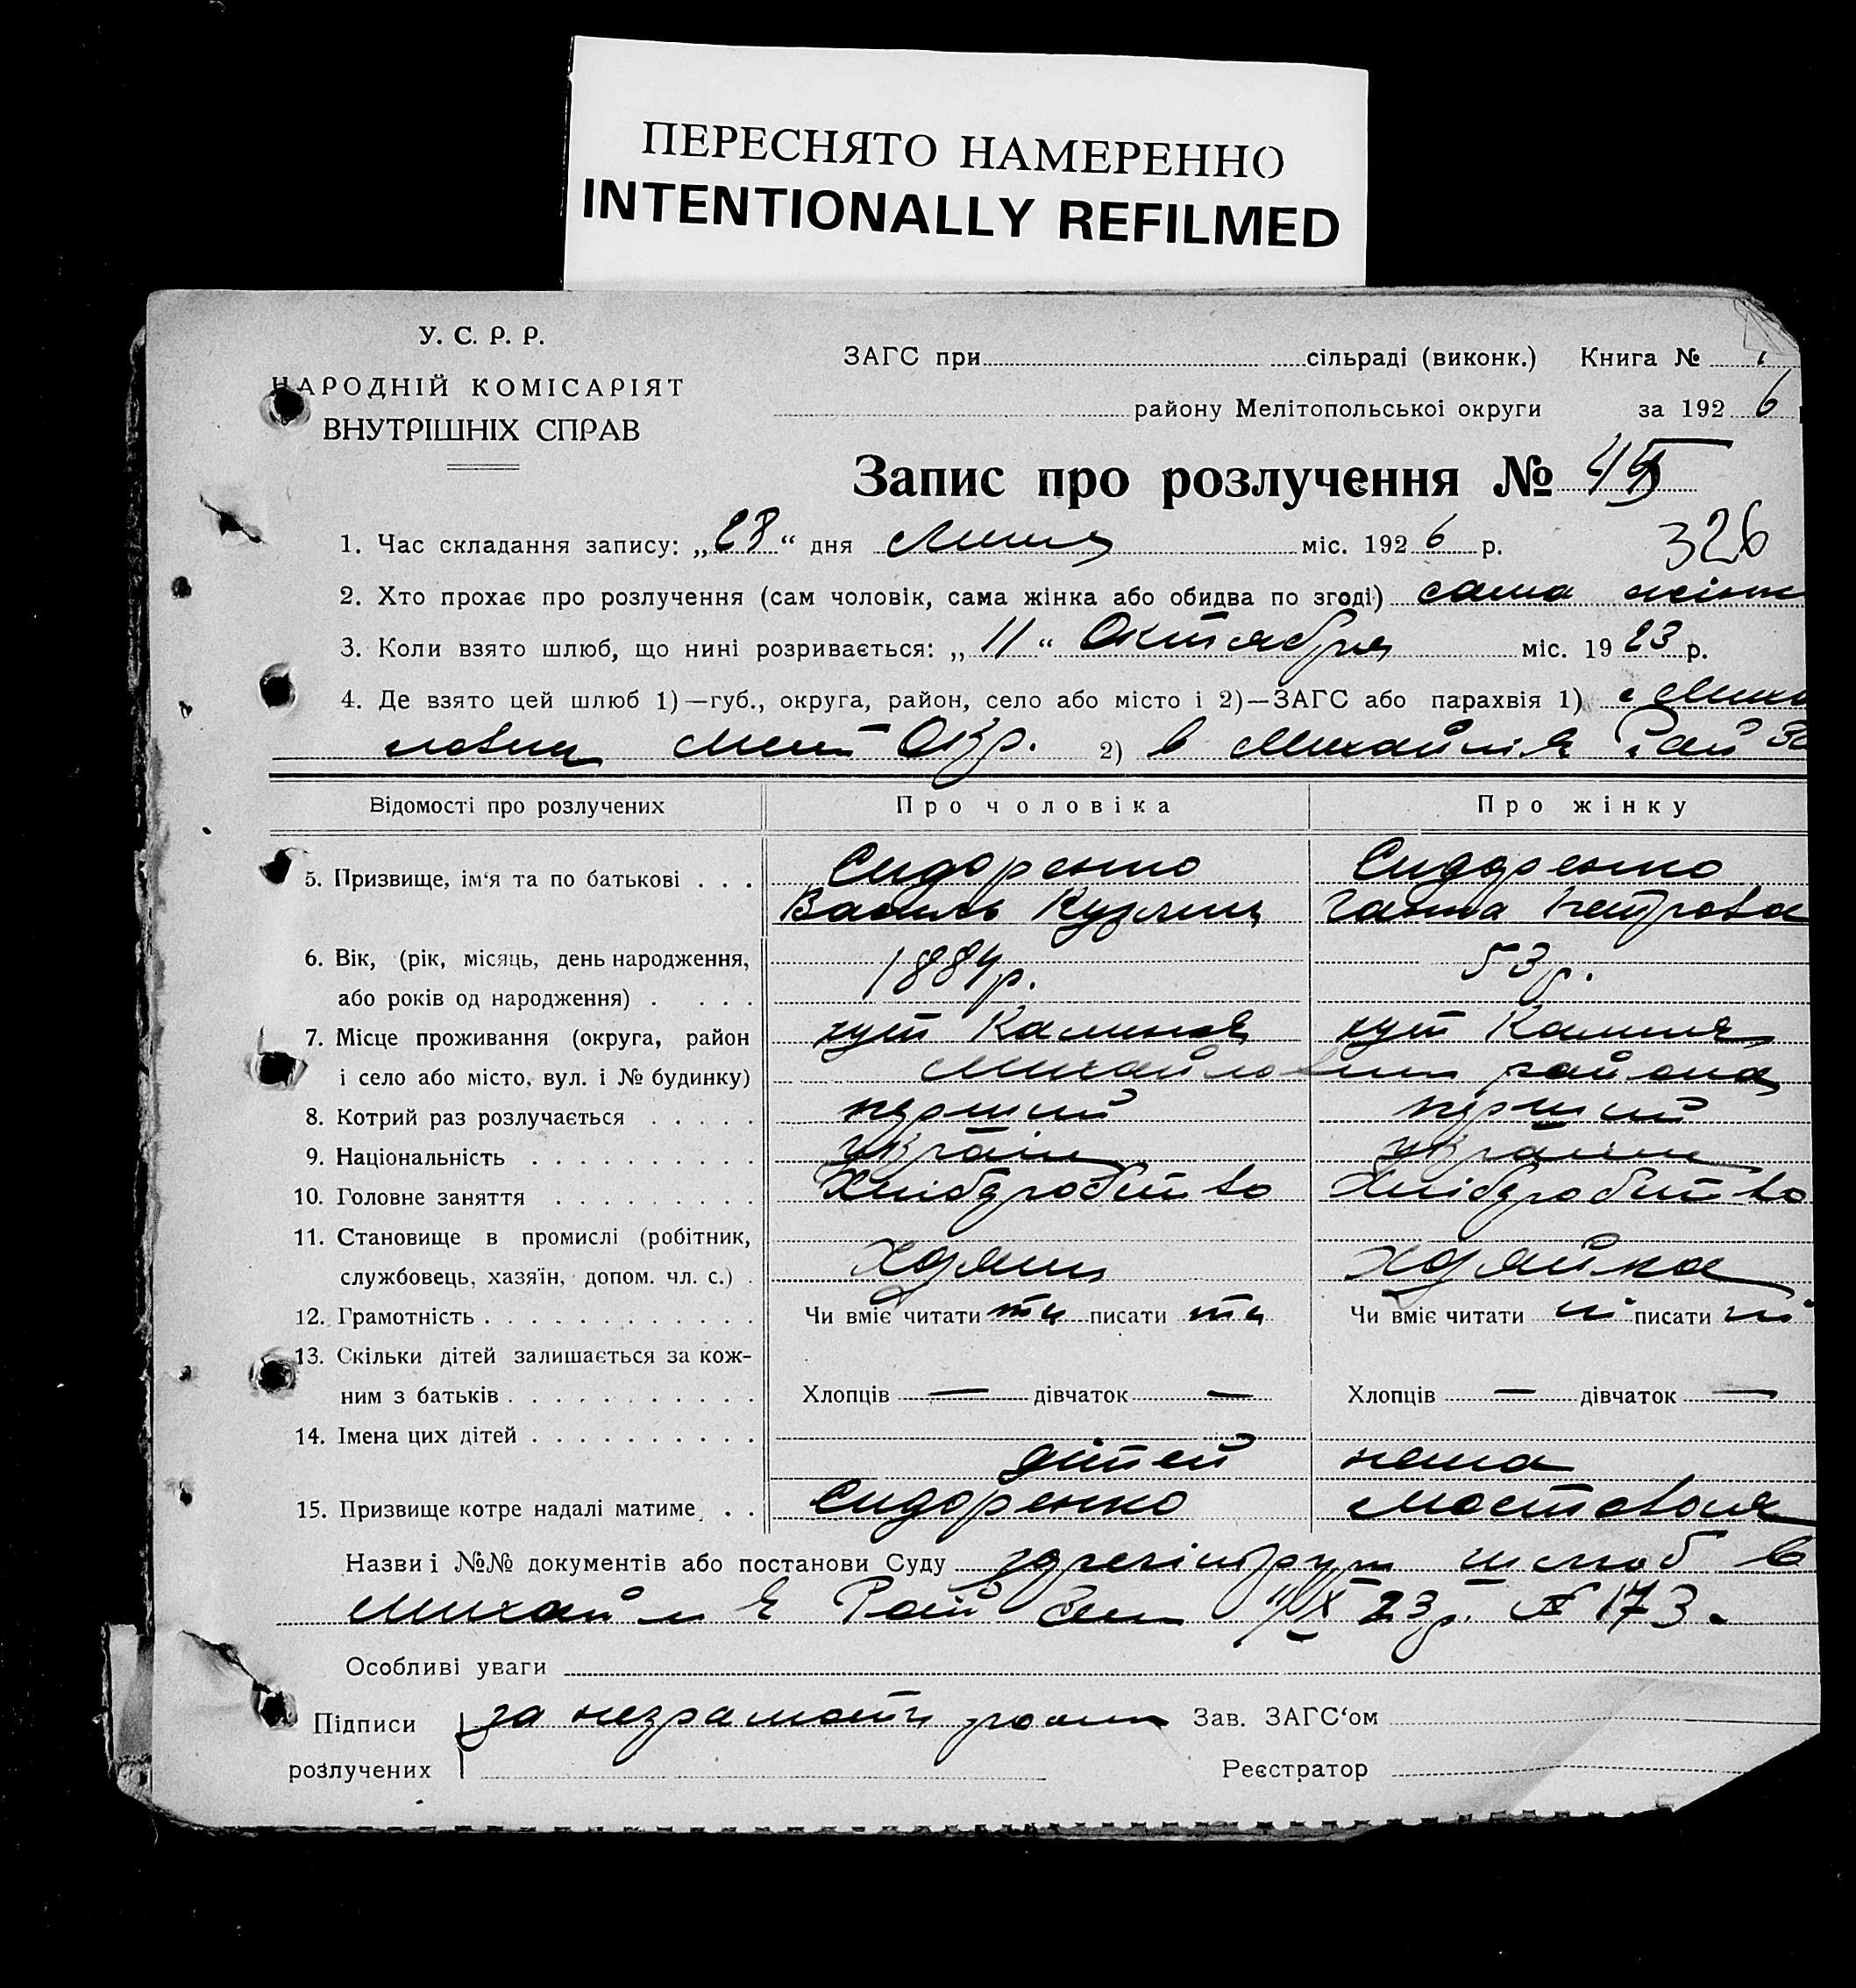 ПЕРЕСНЯТО НАМЕРЕННО
INTENTIONALLY REFILMED
У. С. Р. Р.
НАРОДНІЙ КОМІСАРІЯТ
ВНУТРІШНІХ СПРАВ
ЗАГС при сільраді (виконк.) Книга №
району Мелітопольської округи за 192 6
Запис про розлучення №
326
1. Час складання запису: „28“ дня Липця міс. 192 6 р.
2. Хто прохає про розлучення (сам чоловік, сама жінка або обидва по згоді) сама жінк
3. Коли взято шлюб, що нині розривається: „11“ Октября міс. 19 23 р.
4. Де взято цей шлюб 1)—губ., округа, район, село або місто і 2)—ЗАГС або парахвія 1) с Михай
ловка Меліт Окр. 2) в Михайлів Рай За
Відомості про розлучених Про чоловіка Про жінку
5. Призвище, ім'я та по батькові . . . Сидоренко Сидоренко
Василь Кузьмиц Ганна Петрова
6. Вік, (рік, місяць, день народження, 1884р. 53р.
або років од народження) . . . .
7. Місце проживання (округа, район хут Калин хут Калин
і село або місто, вул. і № будинку) Михайловск района
8. Котрий раз розлучається . . . . . перший перший
9. Національність . . . . . . . . . . україн україн
10. Головне заняття . . . . . . . . . Хліборобство Хліборобство
11. Становище в промислі (робітник,
службовець, хазяїн, допом. чл. с.) . Хозяин хозяйка
12. Грамотність . . . . . . . . . . . . Чи вміє читати так писати так Чи вміє читати ні писати ні
13. Скільки дітей залишається за кож-
ним з батьків . . . . . . . . . . . Хлопців — дівчаток — Хлопців — дівчаток —
14. Імена цих дітей . . . . . . . . . .
дітей нема
15. Призвище котре надалі матиме . . Сидоренко Мостовая
Назви і №№ документів або постанови Суду шлюб в
Михайл Рай 23р. № 173.
Особливі уваги
Підписи за неграмотн Зав. ЗАГС'ом
розлучених Реєстратор